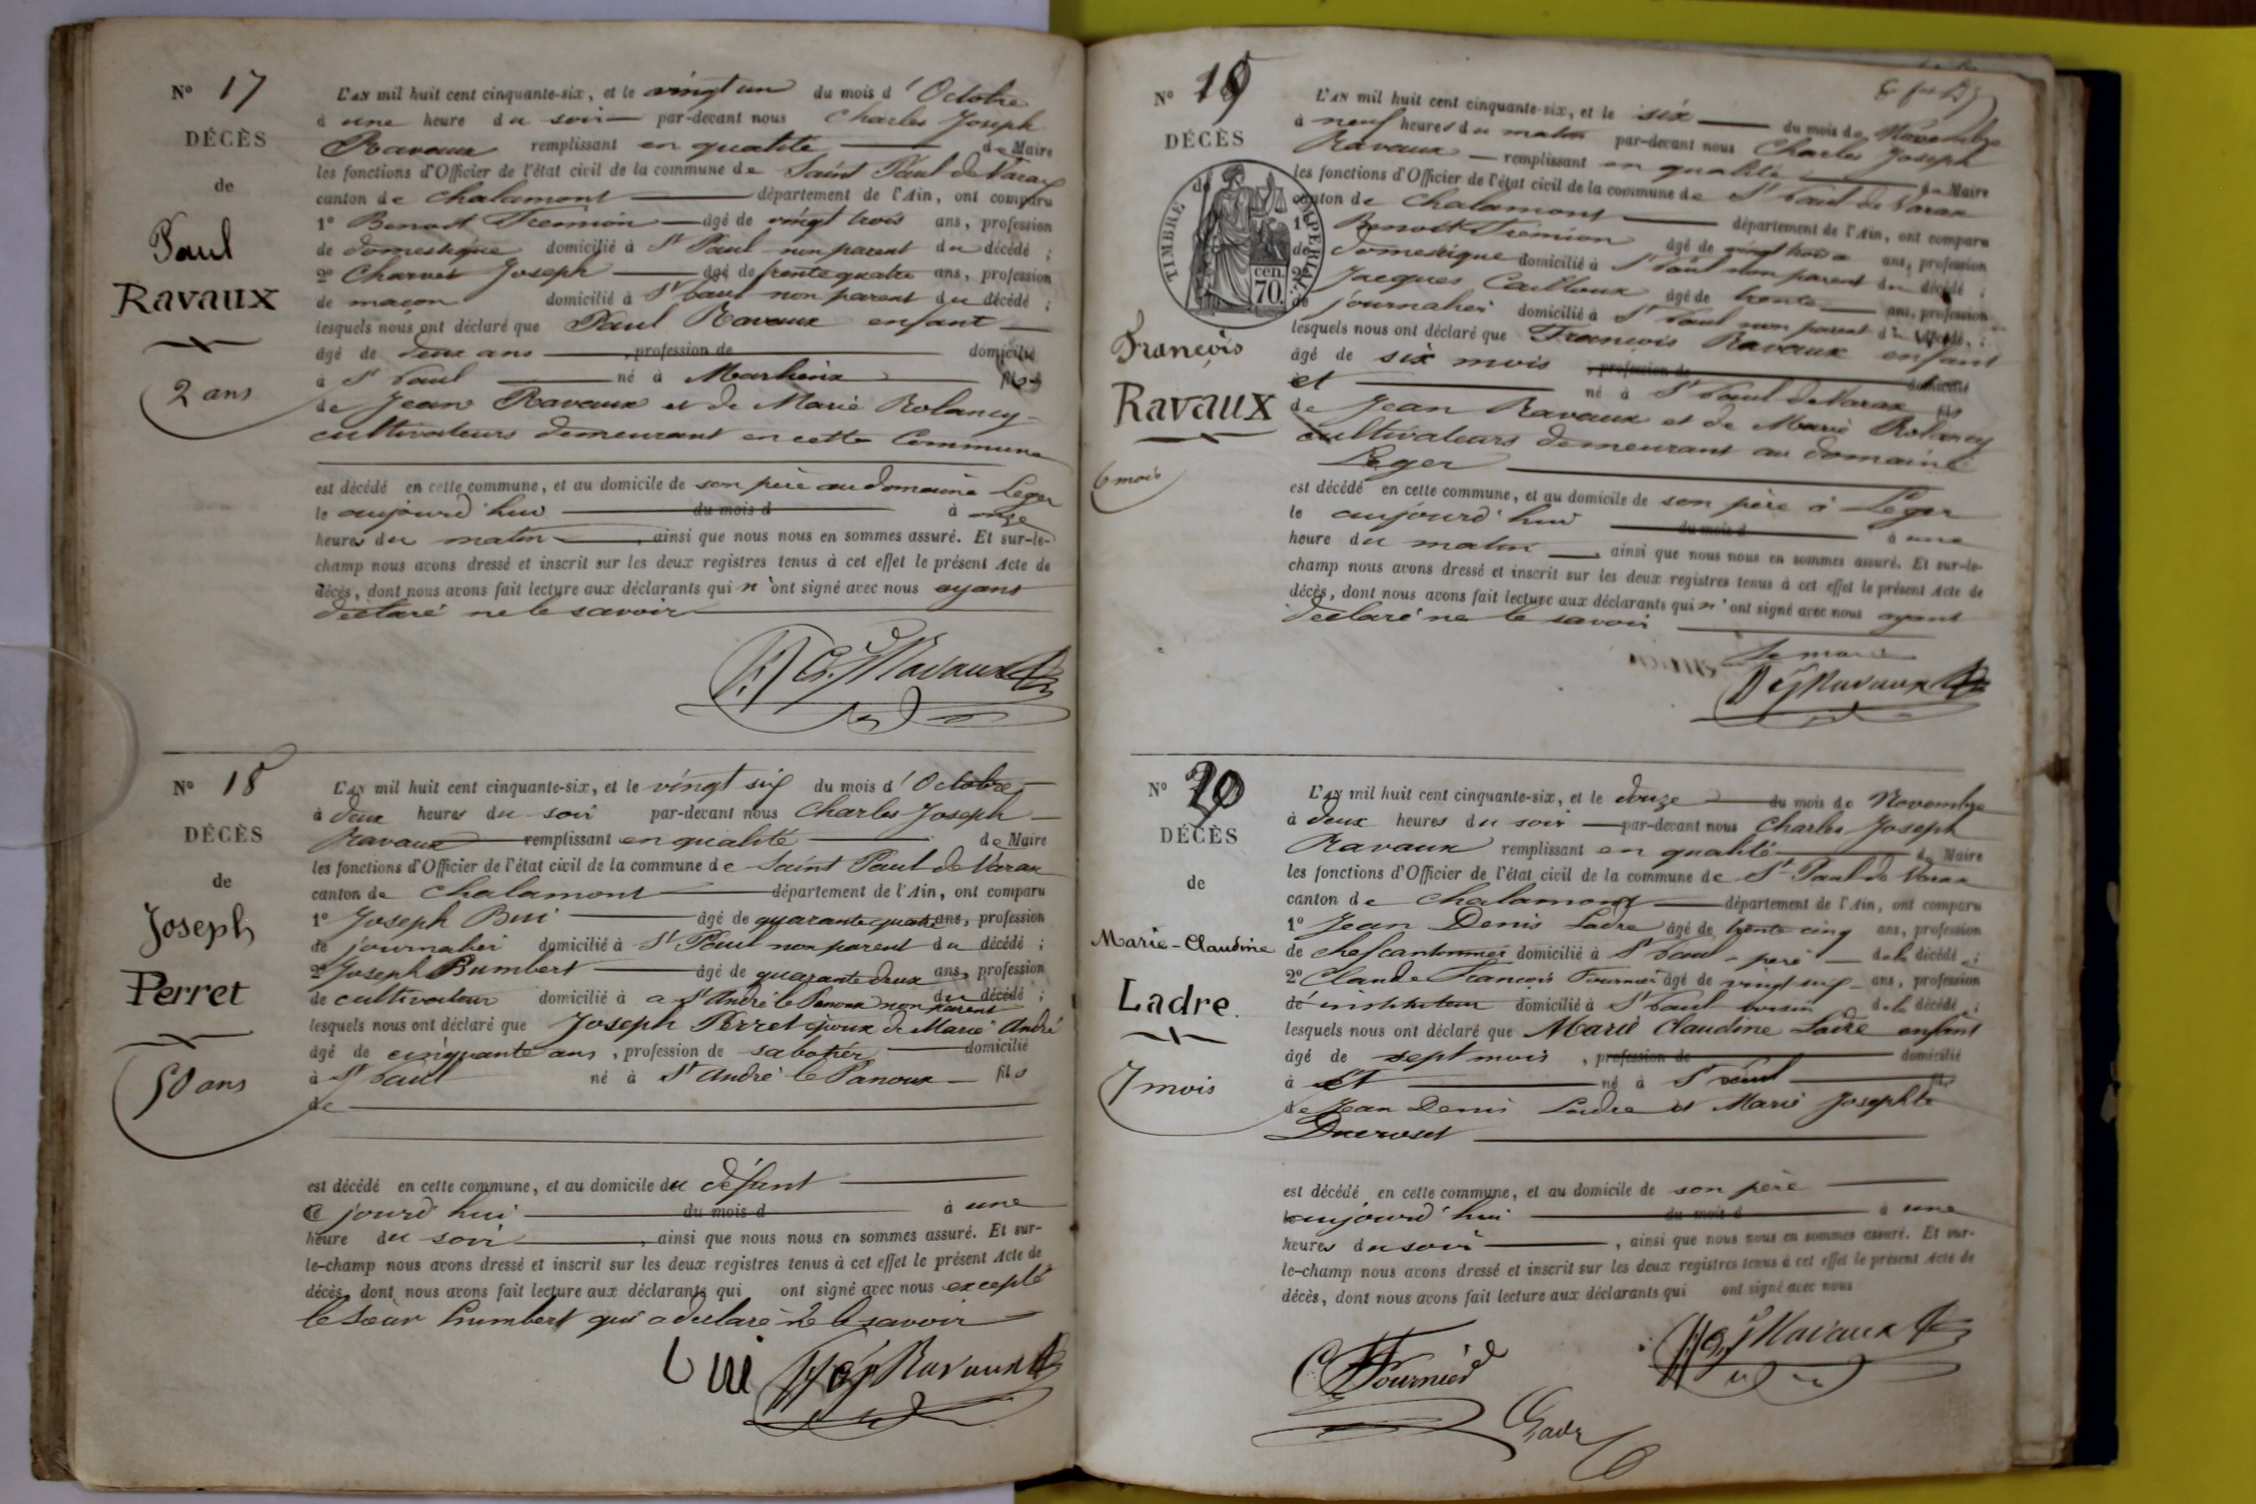 N° 17
DÉCÈS
de
Paul
Ravaux
2 ans
L'AN mil huit cent cinquante-six, et le vingt un du mois d'Octobre
à une heure du soir par-devant nous Charles Joseph
Ravaux remplissant en qualité de Maire
les fonctions d'Officier de l'état civil de la commune de Saint Paul de Varax
canton de Chalamont département de l'Ain, ont comparu
1° Benoit Tremion âgé de vingt trois ans, profession
de domestique domicilié à St Paul non parent du décédé ;
2° Charvet Joseph âgé de trente quatre ans, profession
de maçon domicilié à St Paul non parent du décédé ;
lesquels nous ont déclaré que Paul Ravaux enfant
âgé de deux ans , profession de domicilié
à St Paul né à Marlieux fils
de Jean Ravaux et de Marie Rolancy
cultivateurs demeurant en cette Commune
est décédé en cette commune, et au domicile de son père au domaine Leger
le aujourd'hui du mois d à onze
heures du matin , ainsi que nous nous en sommes assuré. Et sur-le-
champ nous avons dressé et inscrit sur les deux registres tenus à cet effet le présent Acte de
décès, dont nous avons fait lecture aux déclarants qui n'ont signé avec nous ayant
déclaré ne le savoir
Ravaux
N° 18
DÉCÈS
de
Joseph
Perret
50 ans
L'AN mil huit cent cinquante-six, et le vingt six du mois d'Octobre
à deux heures du soir par-devant nous Charles Joseph
Ravaux remplissant en qualité de Maire
les fonctions d'Officier de l'état civil de la commune de Saint Paul de Varax
canton de Chalamont département de l'Ain, ont comparu
1° Joseph Bui âgé de quarante quatre ans, profession
de journalier domicilié à St Paul non parent du décédé ;
2° Joseph Humbert âgé de quarante deux ans, profession
de cultivateur domicilié à a St André le Panoux non parent du décédé ;
lesquels nous ont déclaré que Joseph Perret époux de Marie André
âgé de cinquante ans , profession de sabotier domicilié
à St Paul né à St André le Panoux fils
de
est décédé en cette commune, et au domicile du défunt
Ce jourd'hui du mois d à une
heure du soir , ainsi que nous nous en sommes assuré. Et sur-
le-champ nous avons dressé et inscrit sur les deux registres tenus à cet effet le présent Acte de
décès, dont nous avons fait lecture aux déclarants qui ont signé avec nous excepté
le Sieur humbert qui a déclaré ne le savoir
Ravaux
N° 19
DÉCÈS
de
TIMBRE IMPERIAL
cen.
70.
François
Ravaux
6 mois
L'AN mil huit cent cinquante-six, et le six du mois de Novembre
à neuf heures du matin par-devant nous Charles Joseph
Ravaux remplissant en qualité de Maire
les fonctions d'Officier de l'état civil de la commune de St Paul de Varax
canton de Chalamont département de l'Ain, ont comparu
1° Benoit Tremion âgé de vingt trois ans, profession
de domestique domicilié à St Paul non parent du décédé ;
2° Jacques Cailloux âgé de trente ans, profession
de journalier domicilié à St Paul non parent du décédé ;
lesquels nous ont déclaré que Francois Ravaux enfant
âgé de six mois , profession de domicilié
et né à St Paul de Varax fils
de Jean Ravaux et de Marie Rolancy
cultivateurs demeurant au domaine
Leger
est décédé en cette commune, et au domicile de son père à Leger
le aujourd'hui du mois d à une
heure du matin ainsi que nous nous en sommes assuré. Et sur-le-
champ nous avons dressé et inscrit sur les deux registres tenus à cet effet le présent Acte de
décès, dont nous avons fait lecture aux déclarants qui n'ont signé avec nous ayant
déclaré ne le savoir
Le maire
Ravaux
N° 20
DÉCÈS
de
Marie-Claudine
Ladre.
7 mois
L'AN mil huit cent cinquante-six, et le douze du mois de Novembre
à deux heures du soir par-devant nous Charles Joseph
Ravaux remplissant en qualité de Maire
les fonctions d'Officier de l'état civil de la commune de St Paul de Varax
canton de Chalamont département de l'Ain, ont comparu
1° Jean Denis Ladre âgé de trente cinq ans, profession
de chef cantonnier domicilié à St Paul - père de la décédée ;
2° Claude François Fournier âgé de vingt six ans, profession
de instituteur domicilié à St Paul voisin de la décédée ;
lesquels nous ont déclaré que Marie Claudine Ladre enfant
âgé de sept mois , profession de domicilié
à et né à St Paul
de Jean Denis Ladre et Marie Josephte
Ducroset
est décédé en cette commune, et au domicile de son père
le aujourd'hui du mois d à une
heures du soir , ainsi que nous nous en sommes assuré. Et sur-
le-champ nous avons dressé et inscrit sur les deux registres tenus à cet effet le présent Acte de
décès, dont nous avons fait lecture aux déclarants qui ont signé avec nous
Ravaux
Fournier
Ladre